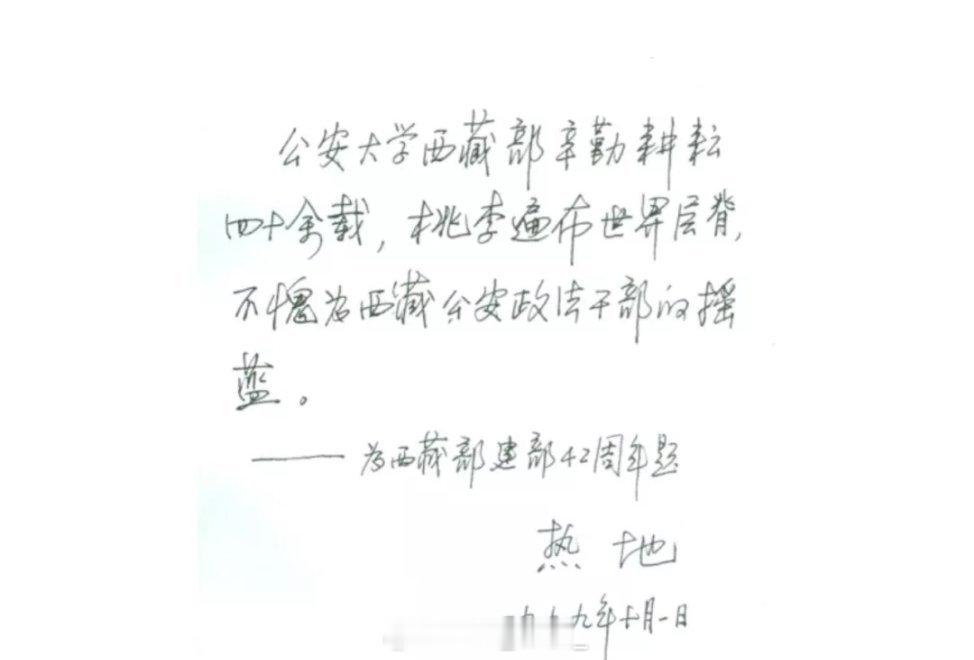 公安大学西藏部辛勤耕耘
四十余载，桃李遍布世界屋脊，
不愧为西藏公安政法干部的摇
蓝。
——为西藏部建部42周年题
热地
九年十月一日